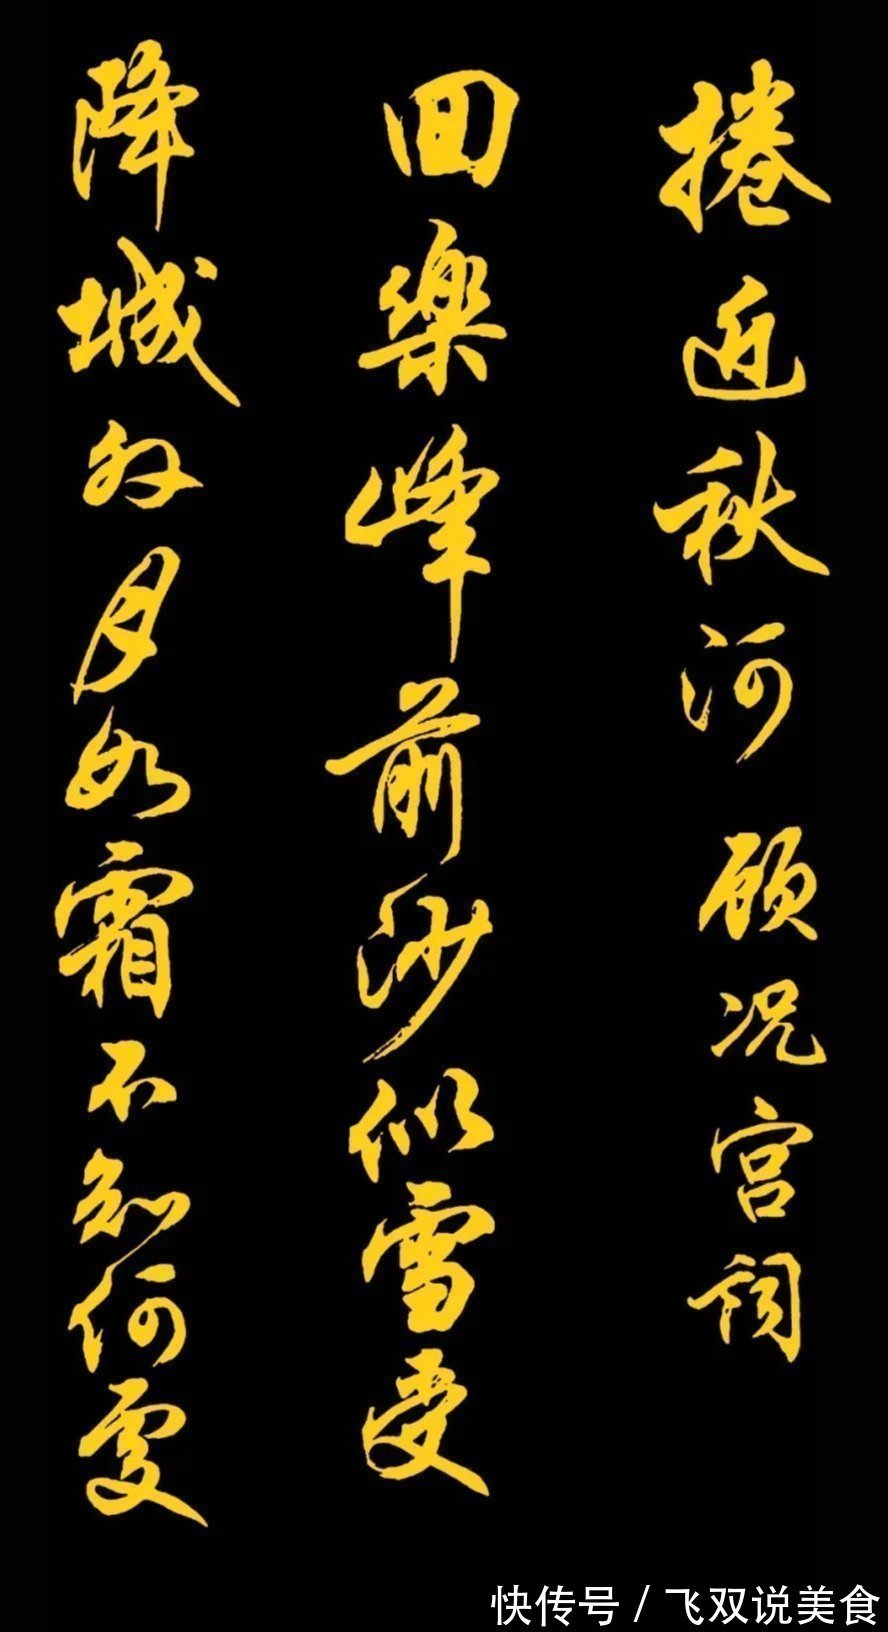 捲近秋河 顾况宫词
回樂峰前沙似雪受
降城外月如霜不知何处
快传号 / 飞双说美食